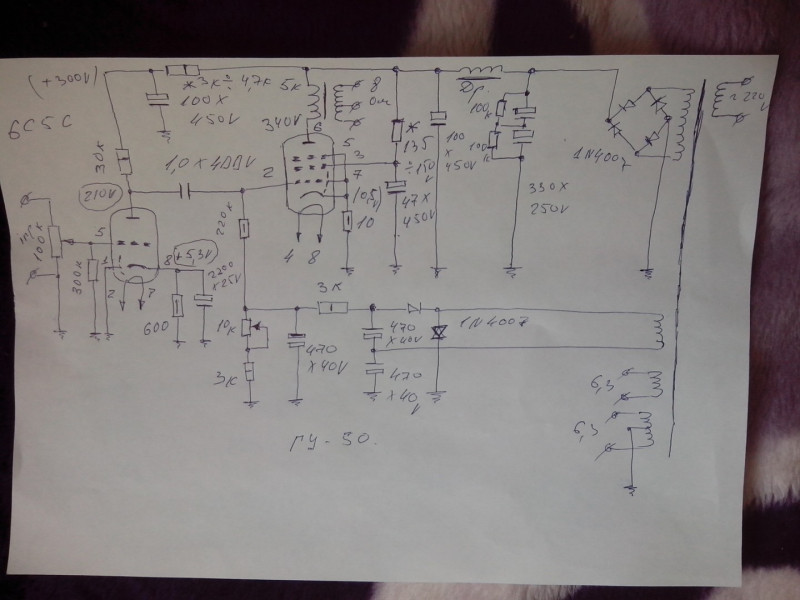 (+300V)
6С5С
*3к÷4,7к
100 X
450V
5к
8
Ом
340V
6
Др.
100к
100к
~220
V
1N4007
30к
1,0 X 400V
2
5
3
7
*
135
÷150
V
100
X
450V
47 X
450V
330 X
250V
210V
220к
(0,5)
10
4
8
вх
100к
5
300к
1
2
7
8
+5,3V
2200
X25V
600
10к
3к
3к
470
X 40V
470
X40V
470
X40
V
1N4007
6,3
6,3
ГУ-50.